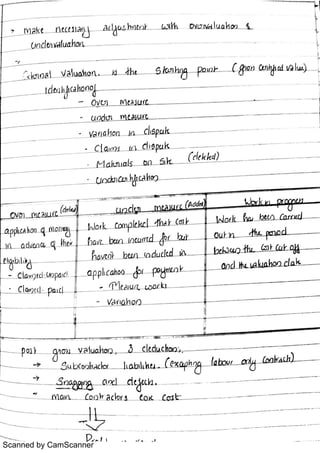 → make necessary Adjustment with Overvaluation &
Undervaluation
External valuation. is the Starting point (gross certified value)
Identification of
- over measure
- under measure
- variation in dispute
- Claims in dispute
- Materials on Site (deleted)
- Undercertification
over measure (deleted)
application of money
in advance of their
Eligibility
- Claimed: Unpaid
- Claimed: paid
under measure (Added)
Work Completed that cost
have been incurred for but
haven't been included in
application for payment
- Measure works
- Variation
Work in progress
Work has been carried
out in the period
between the cost cut off
and the valuation date
post gross valuation, 3 deductions,
→ Subcontractor liabilities. (excepting labour only contracts)
→ Snagging and defects.
→ main Contractors Cost
Scanned by CamScanner